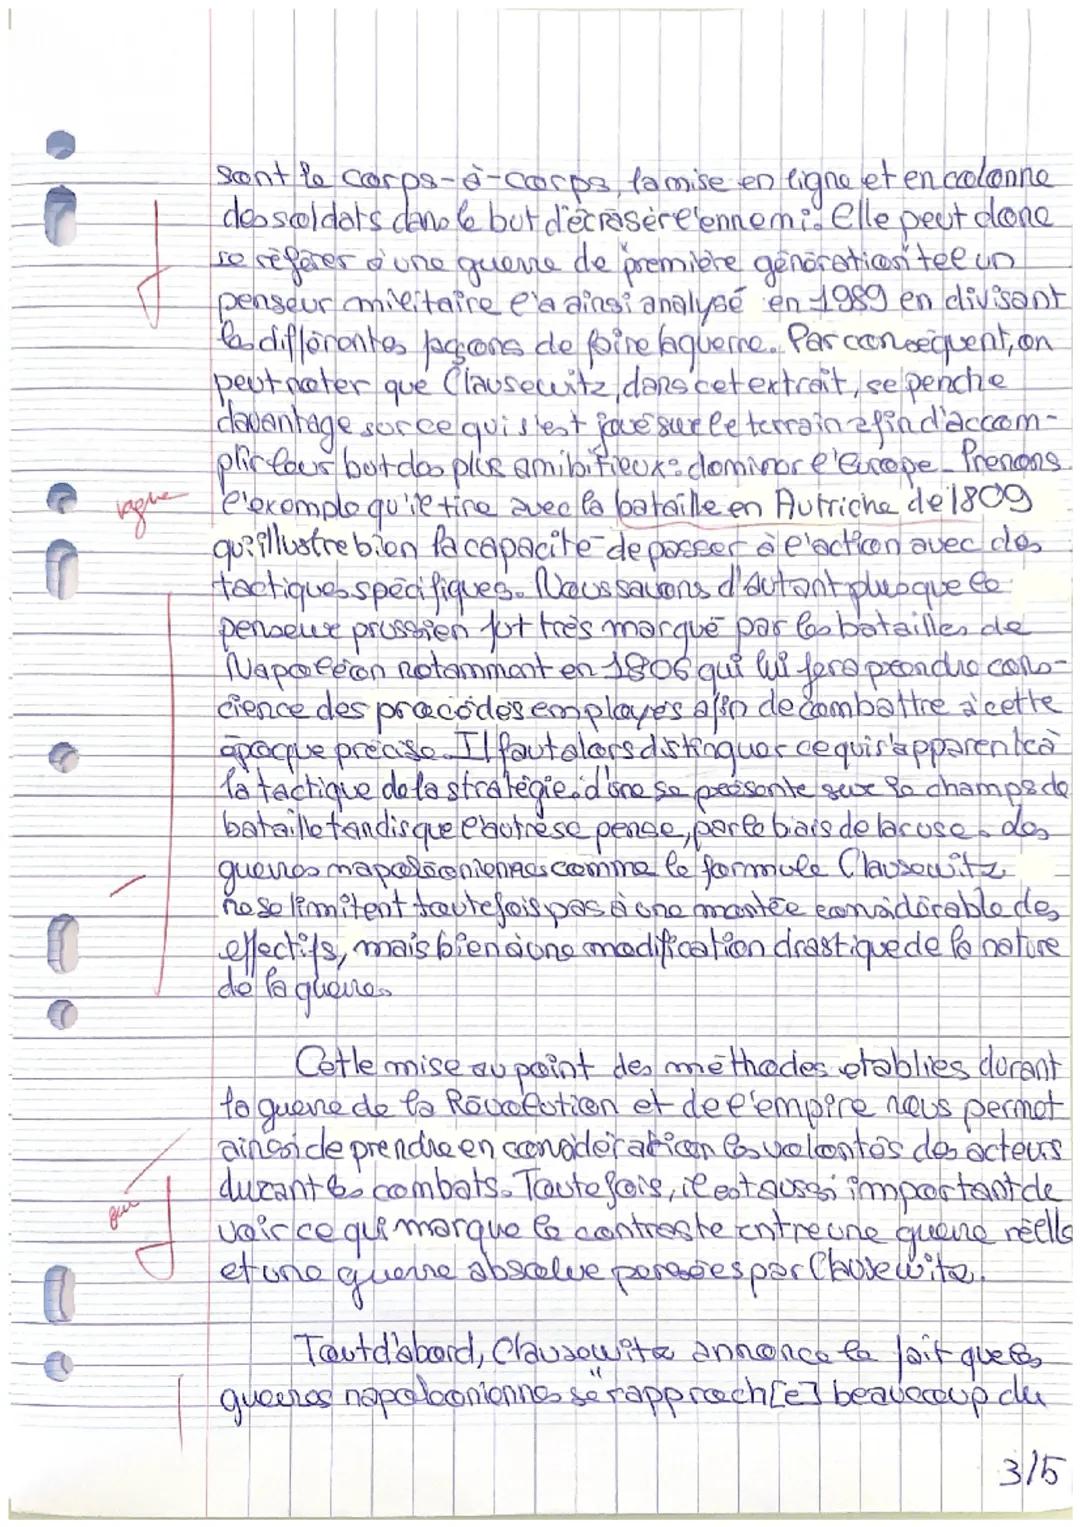 sont le corps-à-corps, la mise en ligne et en colonne
des soldats dans le but d'écrasére l'ennemi. Elle peut donc
se référer à une guerre de "première génération" tel un
penseur militaire l'a ainsi analysé en 1989 en divisant
les différentes façons de faire la guerre. Par conséquent, on
peut noter que Clausewitz, dans cet extrait, se penche
davantage sur ce qui s'est joué sur le terrain afin d'accom-
plir leurs but des plus ambitieux : dominer l'Europe. Prenons
vague
l'exemple qu'il tire avec la bataille en Autriche de 1809
qui illustre bien la capacité de passer à l'action avec des
tactiques spécifiques. Nous savons d'autant plus que le
penseur prussien fut très marqué par les batailles de
Napoléon notamment en 1806 qui lui fera prendre cons-
cience des procédés employés afin de combattre à cette
époque précise. Il faut alors distinguer ce qui s'apparente à
la tactique de la stratégie, d'une se présente sur le champs de
bataille tandis que l'autre se pense, par le biais de la ruse. des
guerres napoléoniennes comme le formule Clausewitz
ne se limitent toutefois pas à une montée considérable des
effectifs, mais bien à une modification drastique de la nature
de la guerre.
Cette mise au point des méthodes établies durant
la guerre de la Révolution et de l'empire nous permet
ainsi de prendre en considération les volontés des acteurs
durant les combats. Toutefois, il est aussi important de
voir ce qui marque le contraste entre une guerre réelle
et une guerre absolue pensées par Clausewitz.
Tout d'abord, Clausewitz annonce le fait que les
guerres napoléoniennes se "rapproch[e] beaucoup du
3/5